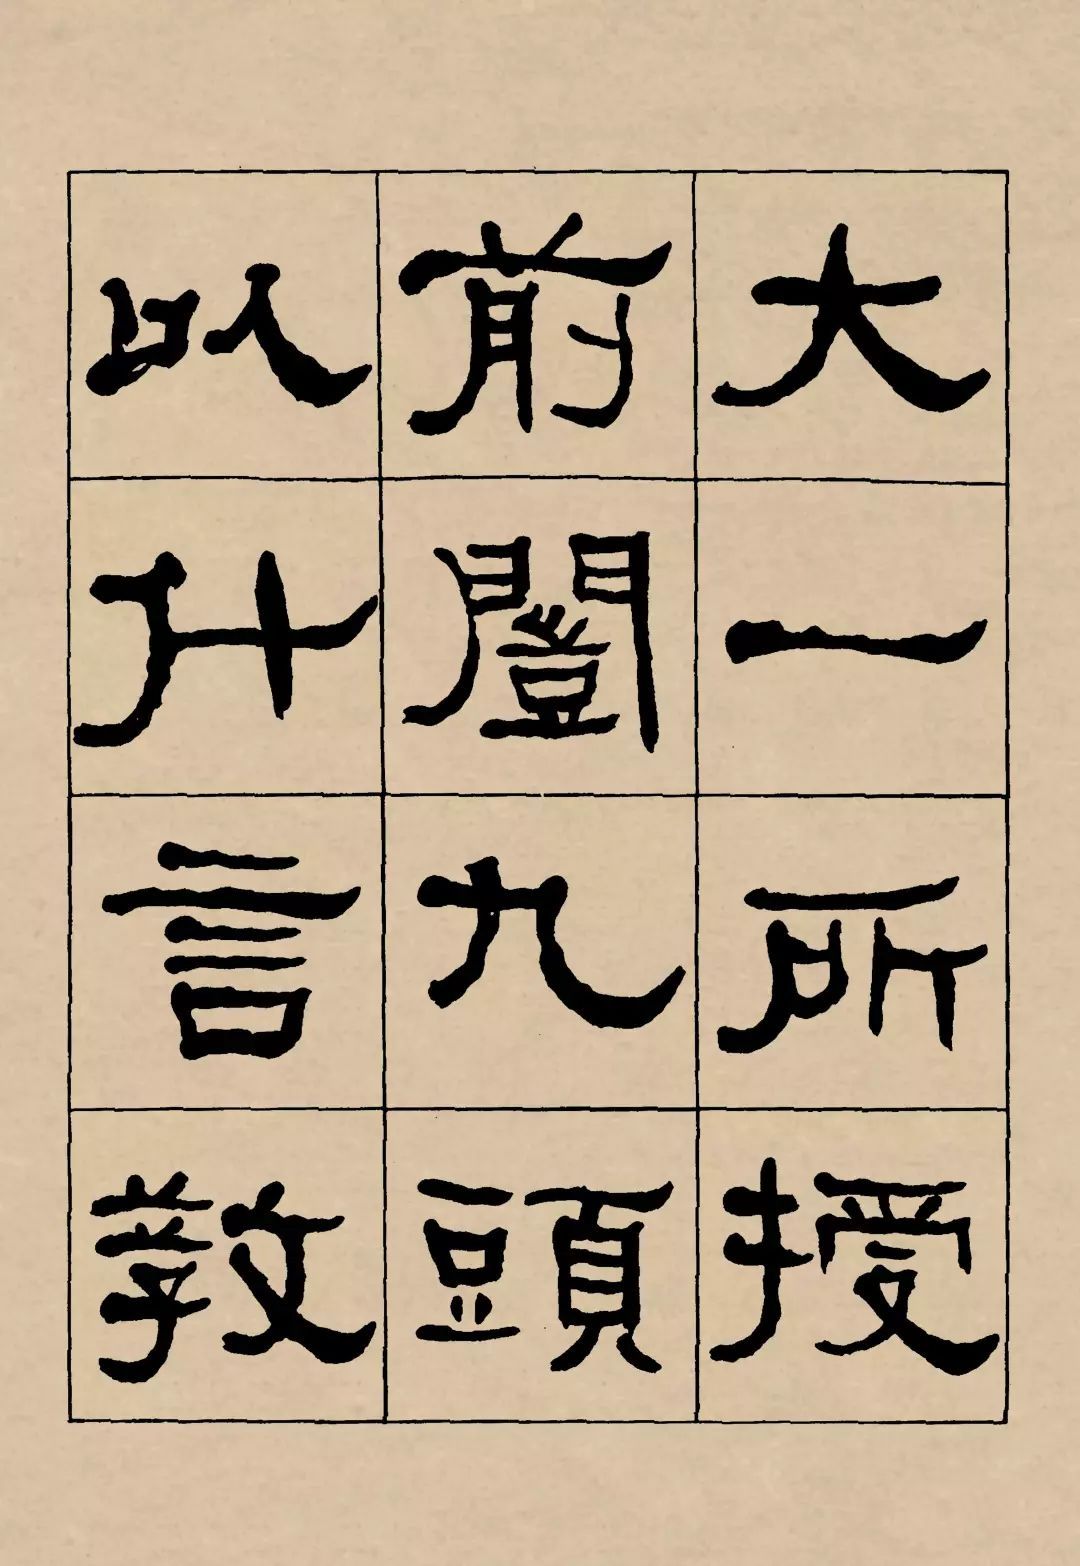 大一所授
前闓九頭
以什言教